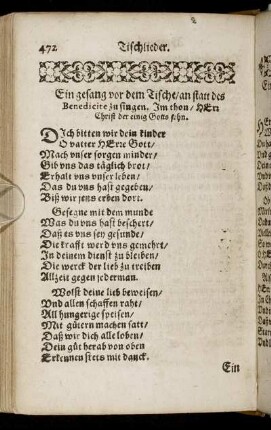 472 Tischlieder.
Ein gesang vor dem Tische/an statt des
Benedicite zu singen, Im thon/ HErr
Christ der einig Gotts sohn.
DIch bitten wir dein kinder
O vatter HErre Gott/
Mach vnser sorgen minder/
Gib vns das täglich brot/
Erhalt vns vnser leben/
Das du vns hast gegeben/
Biß wir jens erben dort.
Gesegne mit dem munde
Was du vns hast beschert/
Daß es vns sey gesunde/
Die krafft werd vns gemehrt/
In deinem dienst zu bleiben/
Die werck der lieb zu treiben
Allzeit gegen jederman.
Wolst deine lieb beweisen/
Vnd allen schaffen raht/
All hungerige speisen/
Mit gütern machen satt/
Daß wir dich alle loben/
Dein güt herab von oben
Erkennen stets mit danck.
Ein